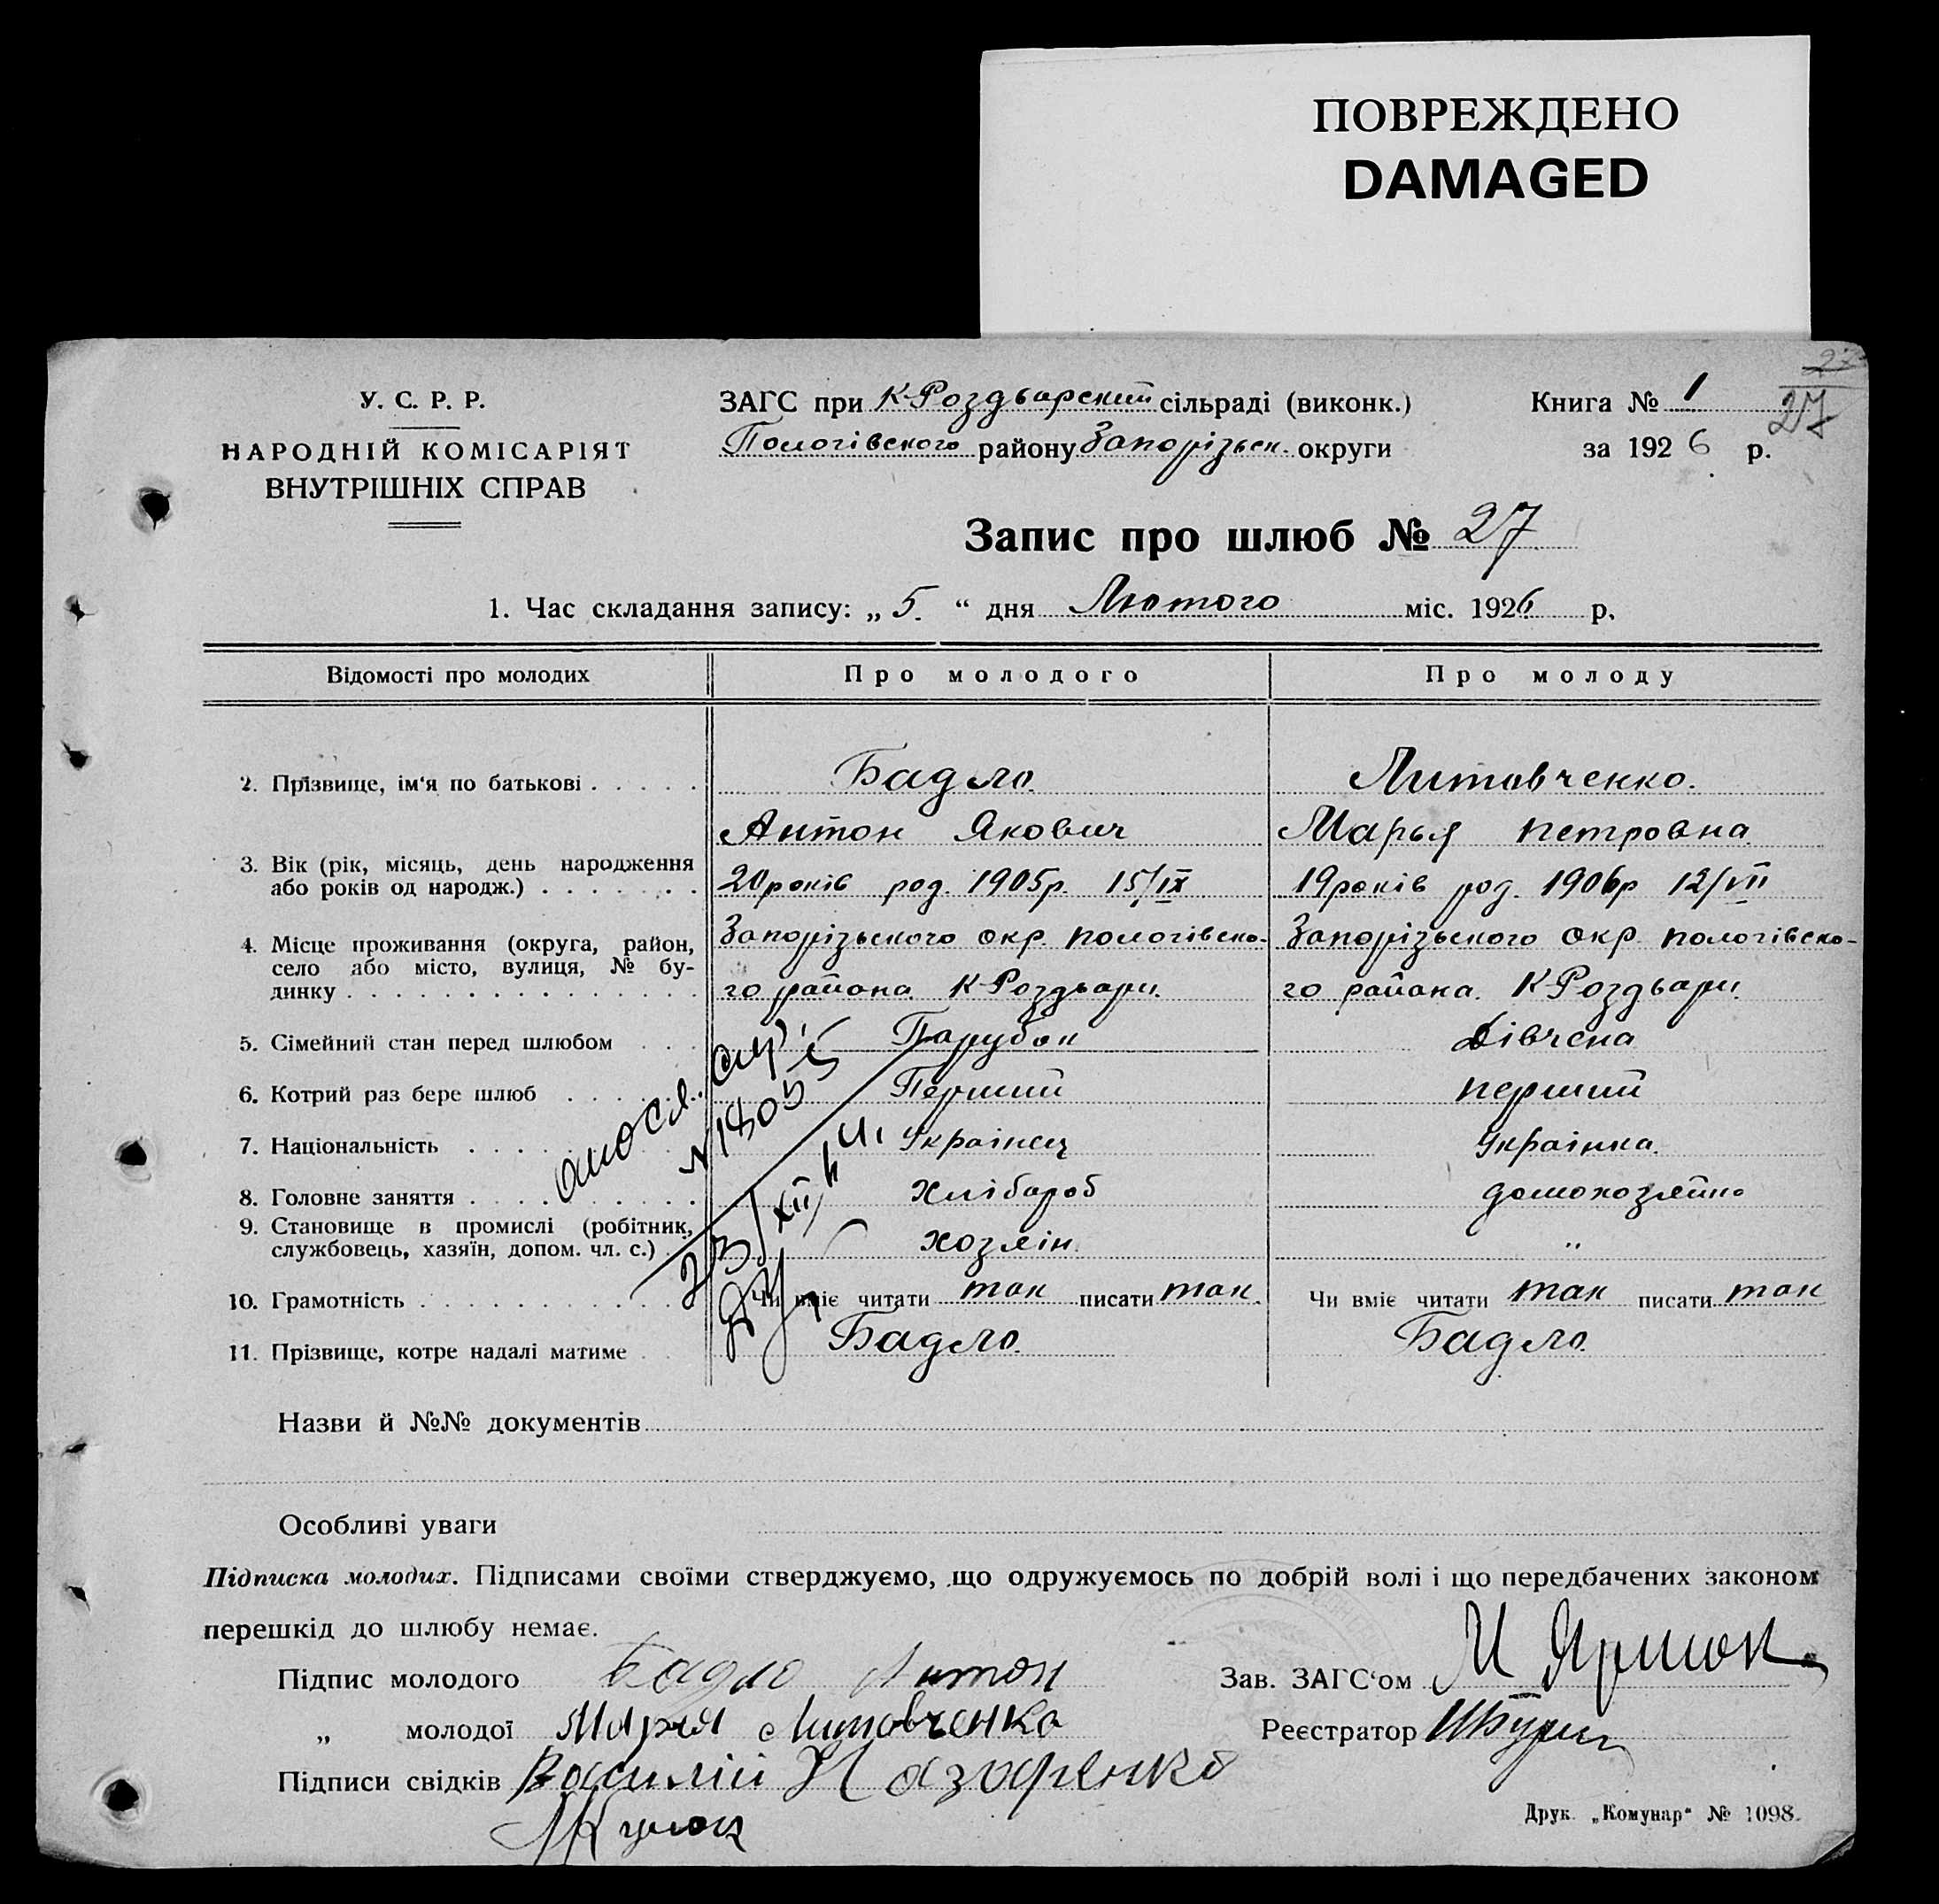 ПОВРЕЖДЕНО
DAMAGED
27
27
У. С. Р. Р.
НАРОДНІЙ КОМІСАРІЯТ
ВНУТРІШНІХ СПРАВ
ЗАГС при К-Роздьорский сільраді (виконк.)
Пологівского району Запорізьк. округи
Книга № 1
за 1926 р.
Запис про шлюб № 27
1. Час складання запису: „ 5. “ дня Лютого міс. 1926 р.
Відомості про молодих
Про молодого
Про молоду
2. Прізвище, ім'я по батькові . . . . .
Бадло
Литовченко.
Антон Якович
Марья Петровна
3. Вік (рік, місяць, день народження
або років од народж.) . . . . . . .
20 років род. 1905р. 15/IX
19 років род. 1906р 12/VII
4. Місце проживання (округа, район,
село або місто, вулиця, № бу-
динку . . . . . . . . . . . . . . .
Запорізьского окр. пологівско-
го района К-Роздьори.
Запорізьского окр. пологівско-
го района. К-Роздьори.
5. Сімейний стан перед шлюбом . . .
Парубок
Дівчена
6. Котрий раз бере шлюб . . . . . .
Перший
перший
7. Національність . . . . . . . . . .
Українец
Українка.
8. Головне заняття . . . . . . . . . .
Хлібороб
домохозяйка
9. Становище в промислі (робітник,
службовець, хазяїн, допом. чл. с.) .
хозяін
"
10. Грамотність . . . . . . . . . . . .
Чи вміє читати так писати так
Чи вміє читати так писати так
11. Прізвище, котре надалі матиме .
Бадло.
Бадло.
№ 1805
23/XII
Назви й №№ документів
Особливі уваги
Підписка молодих. Підписами своїми стверджуємо, що одружуємось по добрій волі і що передбачених законом
перешкід до шлюбу немає.
Підпис молодого Бадло Антон
Зав. ЗАГС'ом
„ молодої Мария Литовченко
Реєстратор
Підписи свідків Василій Назаренко
Друк. „Комунар“ № 1098.